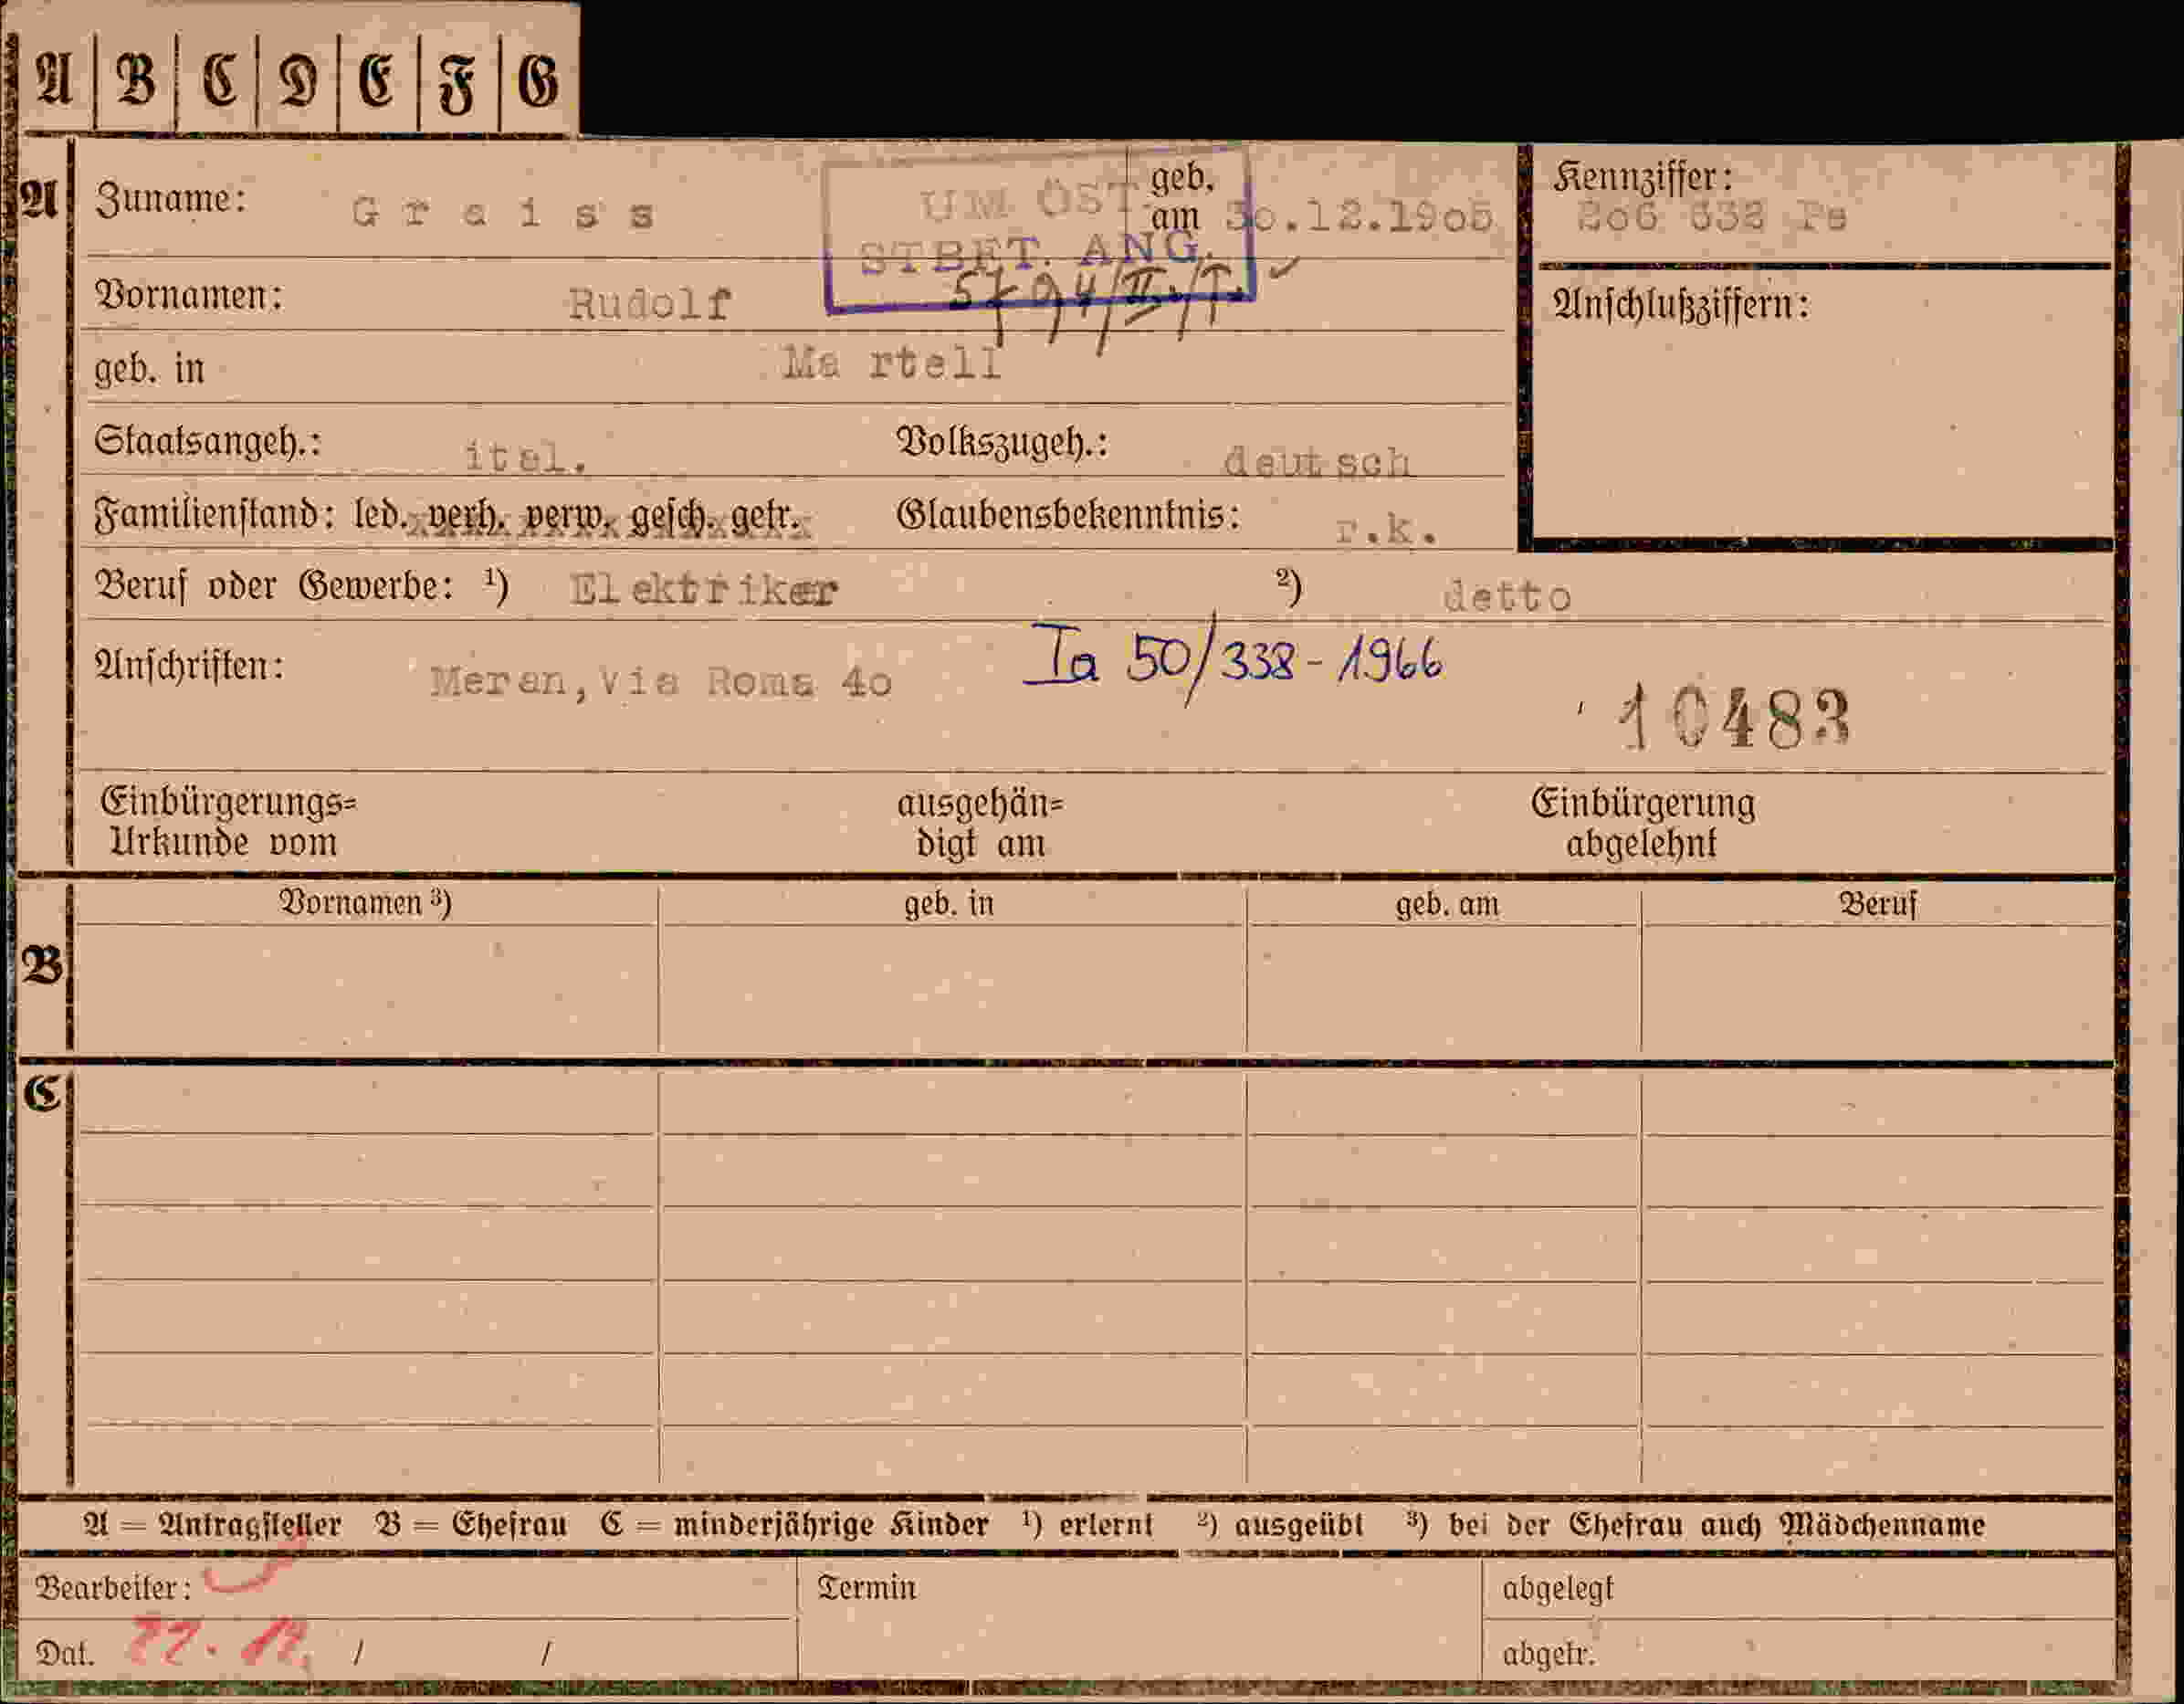 A B C D E F G
A Zuname: Graiss geb. am 30.12.1905 Kennziffer:
UM ÖST.
STBET. ANG.
Vornamen: Rudolf Anschlußziffern:
geb. in Martell
Staatsangeh.: ital. Volkszugeh.: deutsch
Familienstand: led. verh. verw. gesch. getr. Glaubensbekenntnis: r.k.
Beruf oder Gewerbe: ¹) Elektriker ²) detto
Anschriften: Meran, via Roma 4o Ia 50/338-1966
10483
Einbürgerungs= Urkunde vom ausgehän= digt am Einbürgerung abgelehnt
Vornamen ³) geb. in geb. am Beruf
B
C
A = Antragsteller B = Ehefrau C = minderjährige Kinder ¹) erlernt ²) ausgeübt ³) bei der Ehefrau auch Mädchenname
Bearbeiter: Termin abgelegt
Dat. 22.12. / / abgetr.